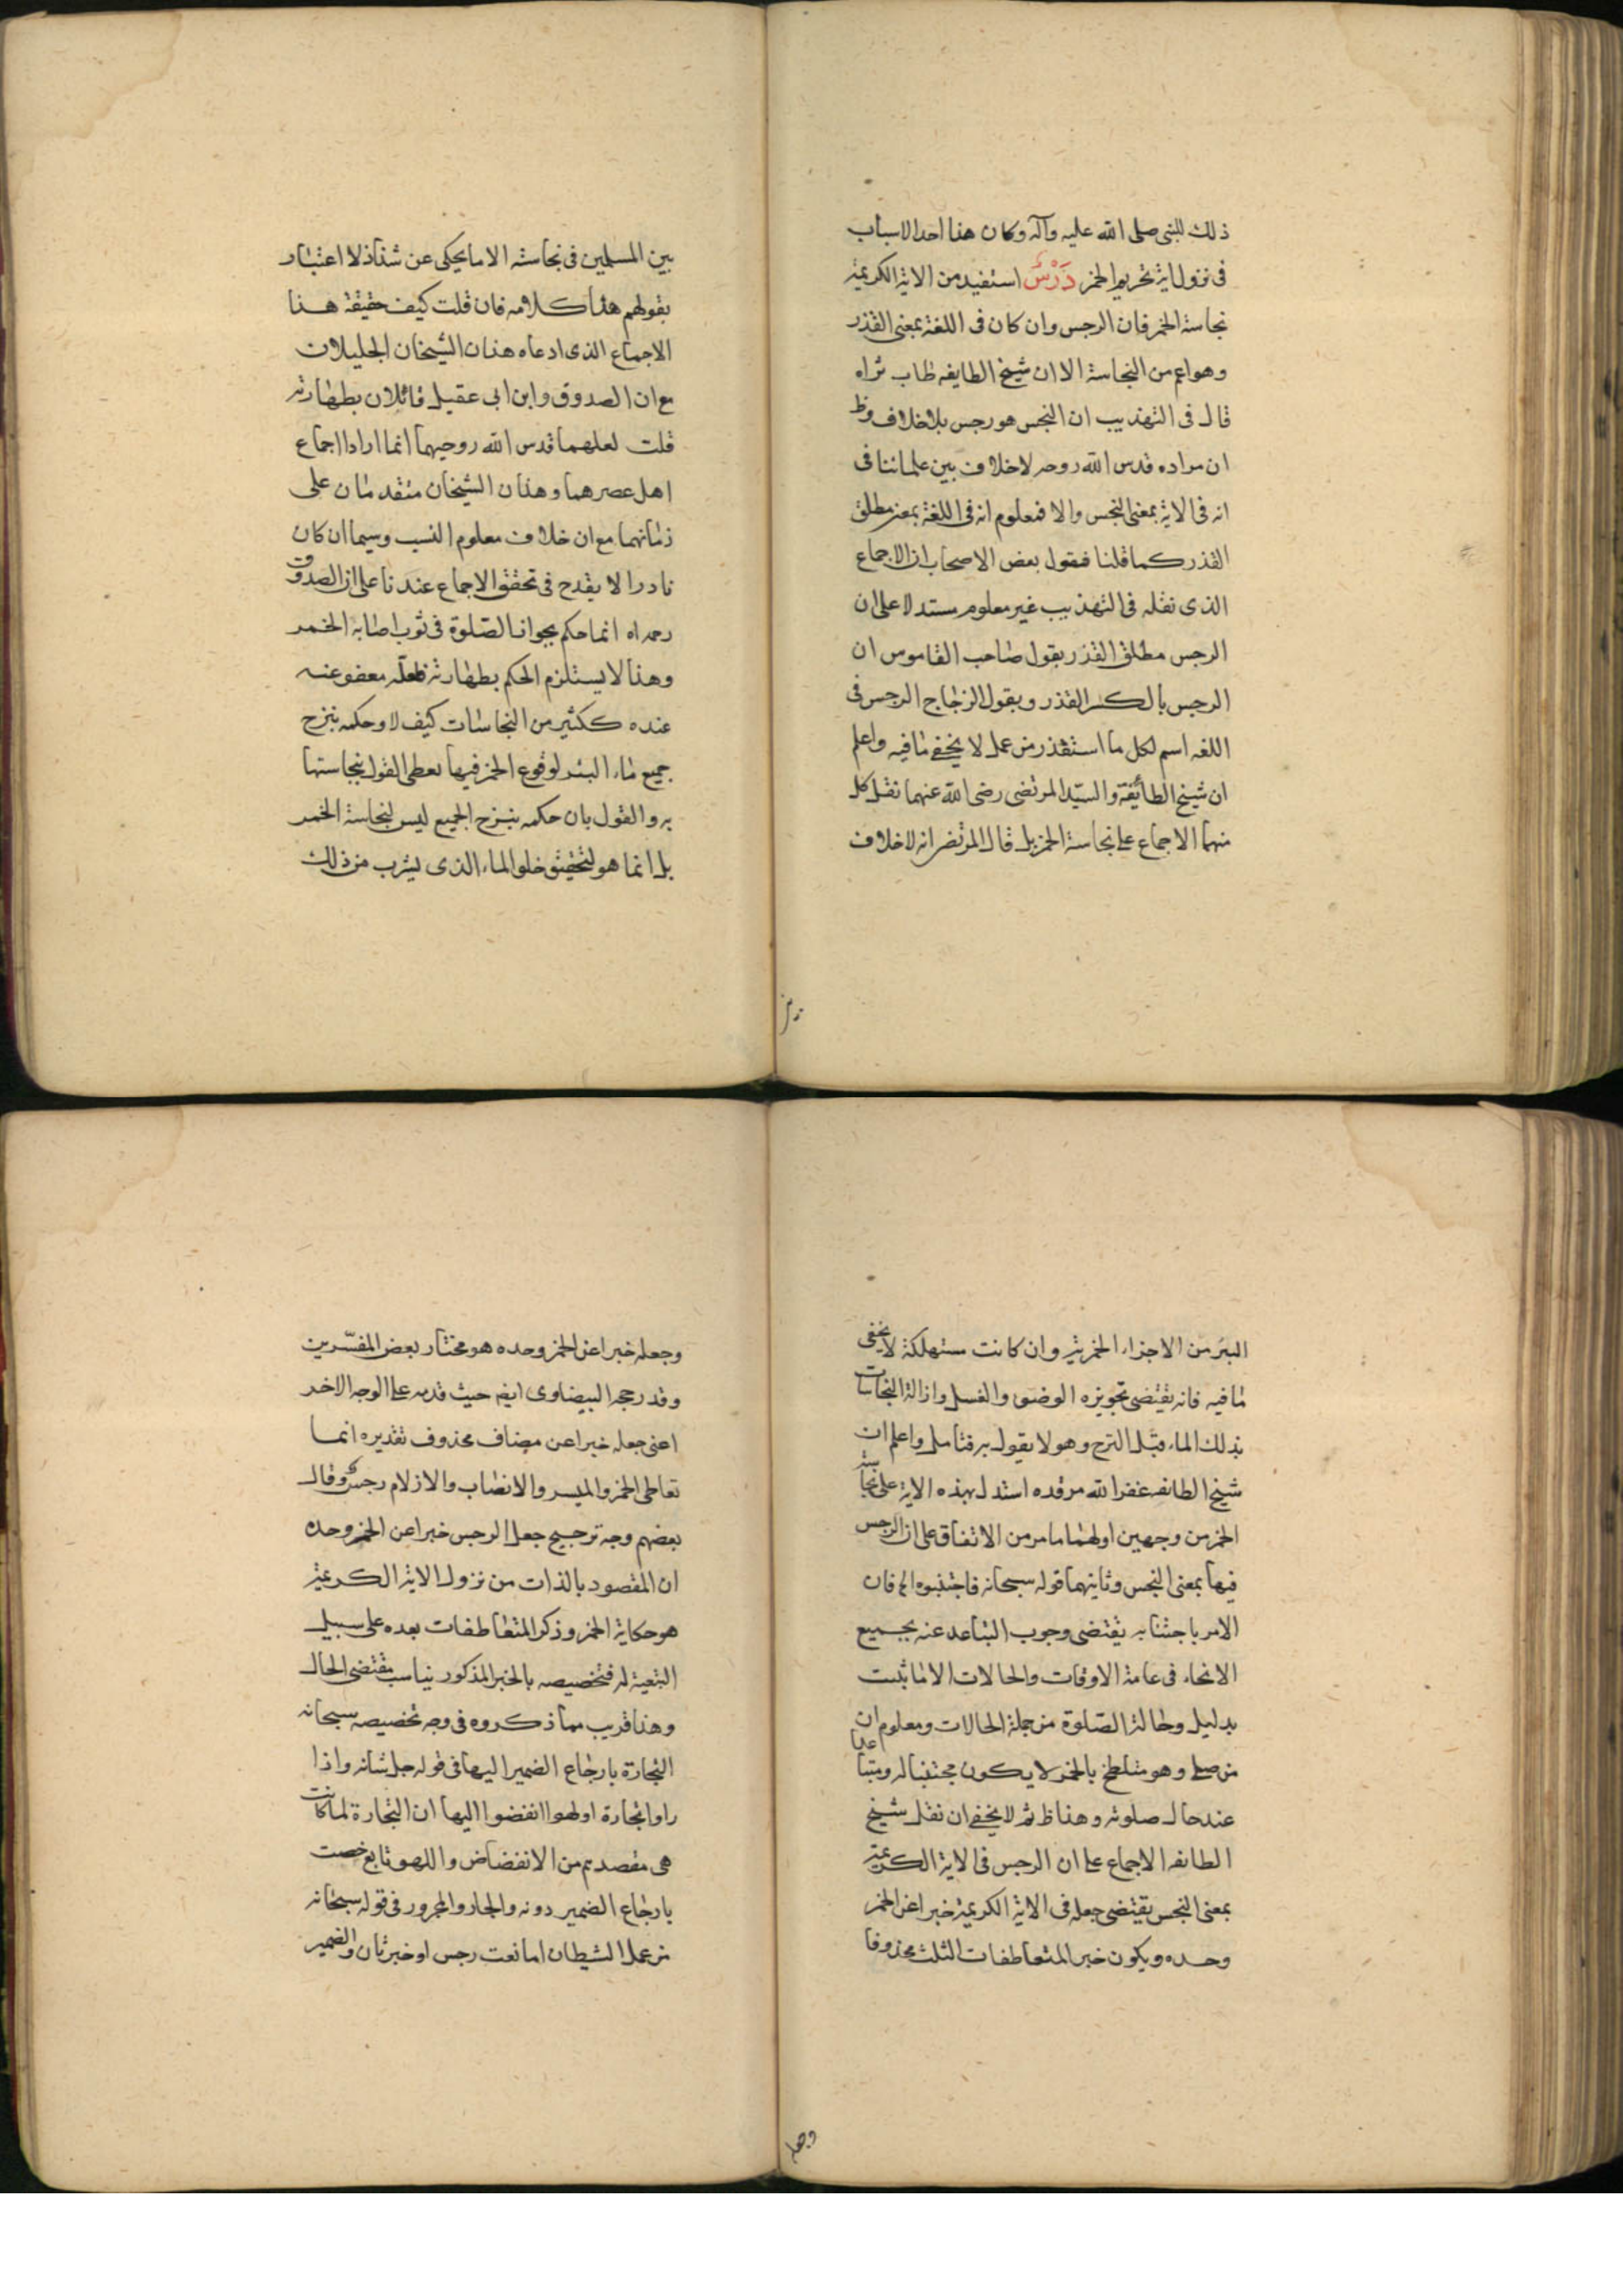 ذلك للنبى صلى الله عليه وآله وكان هذا احد الاسباب
فى نزول اية تحريم الخمر دَرْسٌ استفيد من الاية الكريمة
نجاسة الخمر فان الرجس وان كان فى اللغة بمعنى القذر
وهو اعم من النجاسة الا ان شيخ الطايفه طاب ثراه
قال فى التهذيب ان النجس هو رجس بلا خلاف وظ
ان مراده قدس الله روحه لا خلاف بين علمائنا فى
انه فى الاية بمعنى النجس والا فمعلوم انه فى اللغة بمعنى مطلق
القذر كما قلنا فقول بعض الاصحاب ان الاجماع
الذى نقله فى التهذيب غير معلوم مستدلا على ان
الرجس مطلق القذر بقول صاحب القاموس ان
الرجس بالكسر القذر وبقول الزجاج الرجس فى
اللغه اسم لكل ما استقذر من عمل لا يخفى ما فيه واعلم
ان شيخ الطائفة والسيّد المرتضى رضى الله عنهما نقل كل
منهما الاجماع على نجاسة الخمر بل قال المرتضى انه لا خلاف
بين المسلمين فى نجاسته الا ما يحكى عن شذاذ لا اعتبار
بقولهم هذا كلامه فان قلت كيف حقيقة هذا
الاجماع الذى ادعاه هذان الشيخان الجليلان
مع ان الصدوق وابن ابى عقيل قائلان بطهارته
قلت لعلهما قدس الله روحيهما انما ارادا اجماع
اهل عصرهما وهذان الشيخان متقدمان على
زمانهما مع ان خلاف معلوم النسب وسيما ان كان
نادرا لا يقدح فى تحقق الاجماع عندنا على ان الصدوق
رحمه اه انما حكم بجواز الصّلوة فى ثوب اصابه الخمر
وهذا لا يستلزم الحكم بطهارته فلعلّه معفو عنه
عنده ككثير من النجاسات كيف لا وحكمه بنزح
جميع ماء البئر لوقوع الخمر فيها يعطى القول بنجاستها
به والقول بان حكمه بنزح الجميع ليس لنجاسة الخمر
بل انما هو لتحقيق خلو الماء الذى يشرب من ذلك
البئر من الاجزاء الخمرية وان كانت مستهلكة لا يخفى
ما فيه فانه يقتضى تجويزه الوضوء والغسل وازالة النجاسات
بذلك الماء قبل النزح وهو لا يقول به فتامل واعلم ان
شيخ الطائفه عفر الله مرقده استدل بهذه الاية على نجاسة
الخمر من وجهين اولهما ما مر من الاتفاق على ان الرجس
فيها بمعنى النجس وثانيهما قوله سبحانه فاجتنبوه الخ فان
الامر باجتنابه يقتضى وجوب التباعد عنه بجميع
الانحاء فى عامة الاوقات والحالات الا ما ثبت
بدليل وحالة الصّلوة من جملة الحالات ومعلوم ان
من صلى وهو متلطخ بالخمر لا يكون مجتنبا له ومتباعدا
عند حال صلوته وهذا ظ ثم لا يخفى ان نقل شيخ
الطائفه الاجماع على ان الرجس فى الاية الكريمة
بمعنى النجس يقتضى جعله فى الاية الكريمة خبرا عن الخمر
وحده ويكون خبر المتعاطفات الثلث محذوفا
وجعله خبرا عن الخمر وحده هو مختار بعض المفسّرين
وقد رجحه البيضاوى ايضا حيث قدمه على الوجه الاخر
اعنى جعله خبرا عن مضاف محذوف تقديره انما
تعاطى الخمر والميسر والانصاب والازلام رجس وقال
بعضهم وجه ترجيح جعل الرجس خبرا عن الخمر وحده
ان المقصود بالذات من نزول الاية الكريمة
هو حكاية الخمر وذكر المتعاطفات بعده على سبيل
التبعية له فتخصيصه بالخبر المذكور يناسب مقتضى الحال
وهذا قريب مما ذكروه فى وجه تخصيصه سبحانه
التجارة بارجاع الضمير اليها فى قوله جل شانه واذا
راوا تجارة او لهوا انفضوا اليها ان التجارة لما كانت
هى مقصدهم من الانفضاض واللهو تابع خصت
بارجاع الضمير دونه والجار والمجرور فى قوله سبحانه
من عمل الشيطان اما نعت رجس او خبر ثان والضمير
وجعله